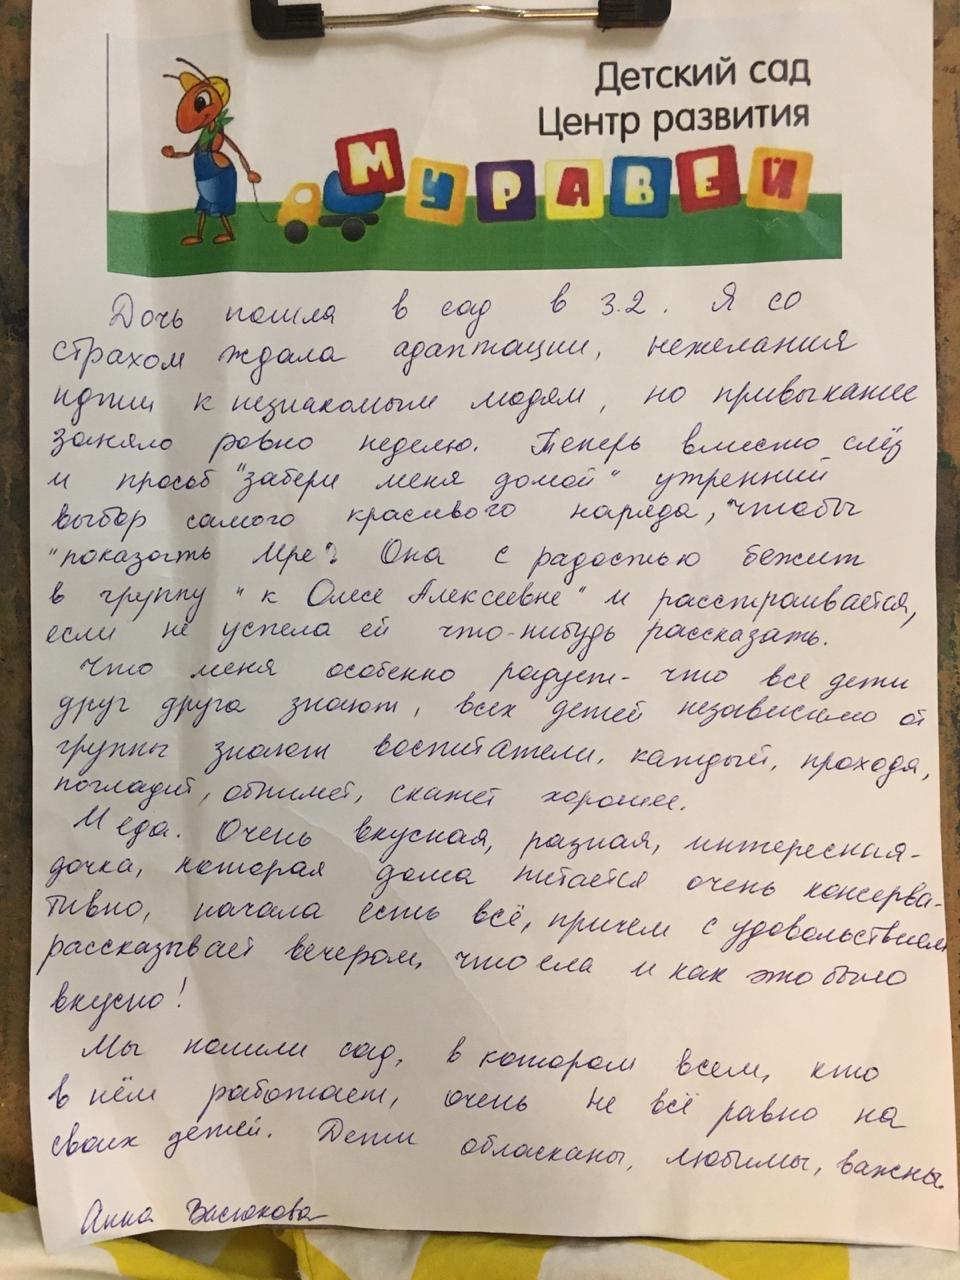 Детский сад
Центр развития
МУРАВЕЙ
Дочь пошла в сад в 3.2. Я со
страхом ждала адаптации, нежелания
идти к незнакомым людям, но привыкание
заняло ровно неделю. Теперь вместо слёз
и просьб "забери меня домой" утренний
выбор самого красивого наряда, "чтобы
"показать Ире". Она с радостью бежит
в группу "к Олесе Алексеевне" и расстраивается,
если не успела ей что-нибудь рассказать.
Что меня особенно радует - что все дети
друг друга знают, всех детей независимо от
группы знают воспитатели, каждый, проходя,
погладит, обнимет, скажет хорошее.
Меда. Очень вкусная, разная, интересная-
дочка, которая дома питается очень консерва-
тивно, начала есть всё, причем с удовольствием
рассказывает вечером, что ела и как это было
вкусно!
Мы нашли сад, в котором всем, кто
в нём работает, очень не всё равно на
своих детей. Дети обласканы, любимы, важны.
Анна Васюкова